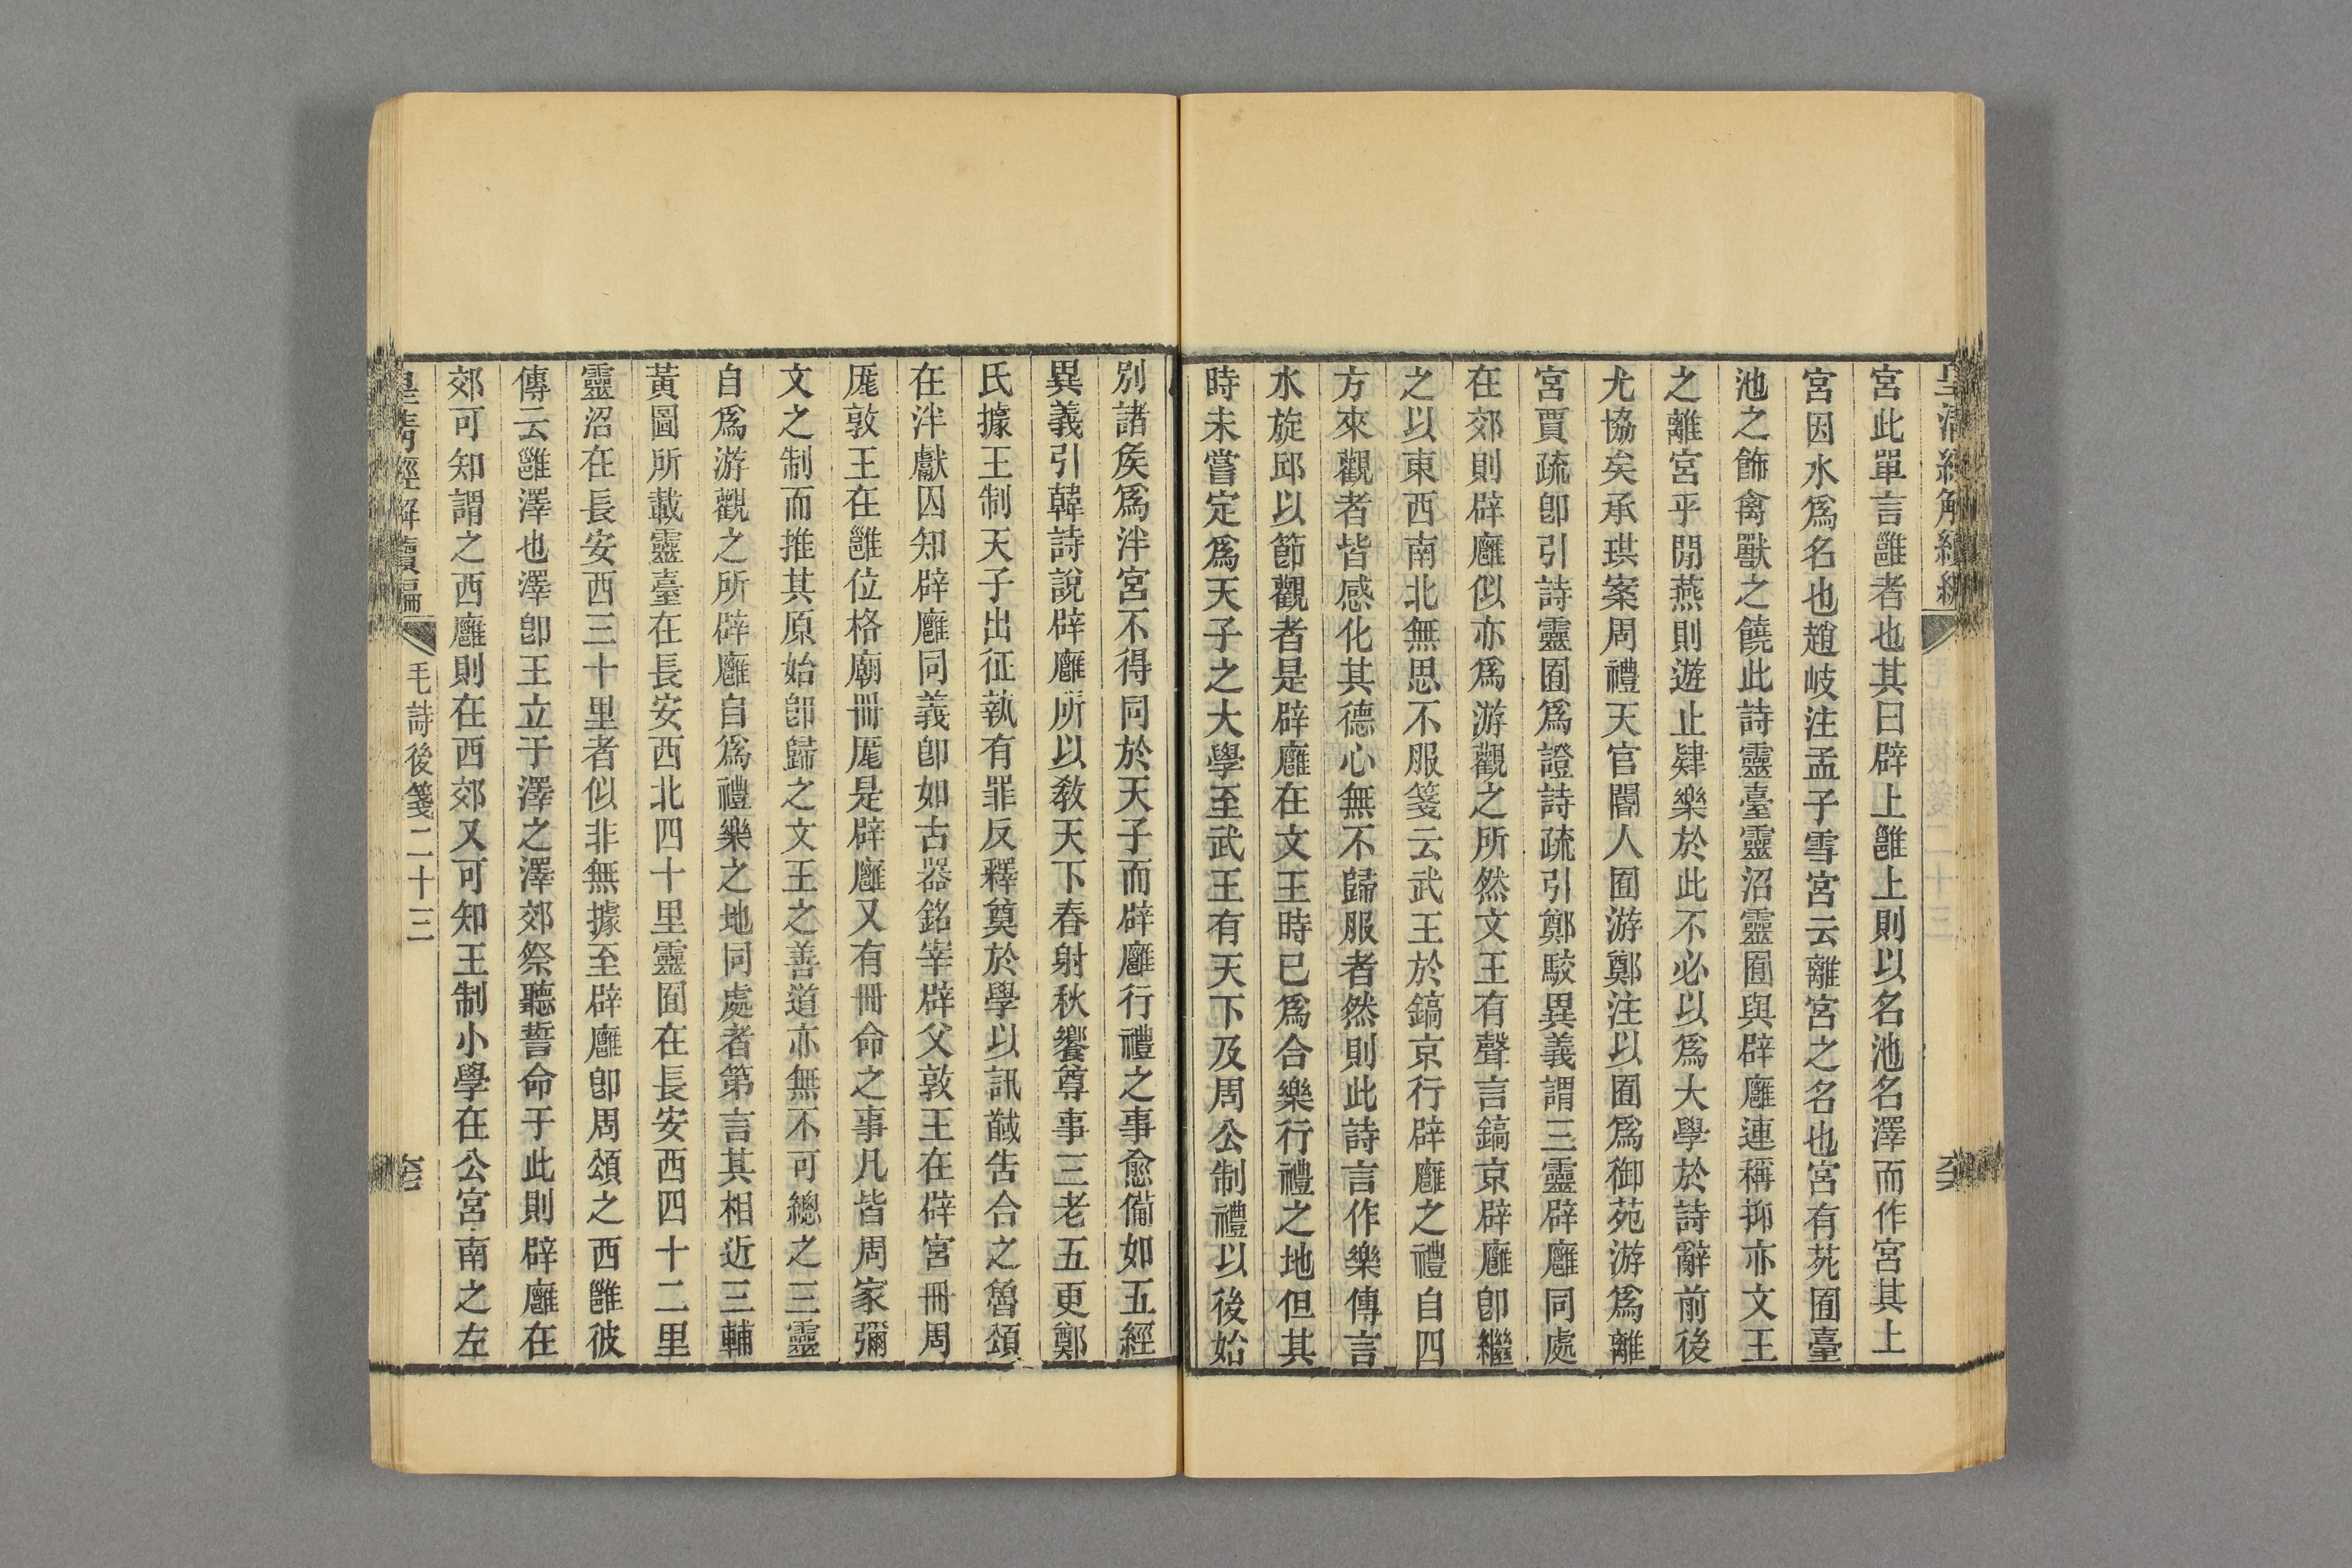 宮此單言雝者也其曰辟上雝上則以名池名澤而作宮其上
宮因水爲名也趙岐注孟子雪宮云離宮之名也宮有苑囿臺
池之飾禽獸之饒此詩靈臺靈沼靈囿與辟廱連稱抑亦文王
之離宮乎閒燕則遊止肄樂於此不必以爲大學於詩辭前後
尤協矣承珙案周禮天官閽人囿游鄭注以囿爲御苑游爲離
宮賈疏卽引詩靈囿爲證詩疏引鄭駁異義謂三靈辟廱同處
在郊則辟廱似亦爲游觀之所然文王有聲言鎬京辟廱卽繼
之以東西南北無思不服箋云武王於鎬京行辟廱之禮自四
方來觀者皆感化其德心無不歸服者然則此詩言作樂傳言
水旋邱以節觀者是辟廱在文王時已爲合樂行禮之地但其
時未嘗定爲天子之大學至武王有天下及周公制禮以後始
別諸矦爲泮宮不得同於天子而辟廱行禮之事愈備如五經
異義引韓詩說辟廱所以敎天下春射秋饗尊事三老五更鄭
氏據王制天子出征執有罪反釋奠於學以訊馘告合之魯頌
在泮獻囚知辟廱同義卽如古器銘宰辟父敦王在辟宮冊周
厖敦王在雝位格廟冊厖是辟廱又有冊命之事凡皆周家彌
文之制而推其原始卽歸之文王之善道亦無不可總之三靈
自爲游觀之所辟廱自爲禮樂之地同處者第言其相近三輔
黃圖所載靈臺在長安西北四十里靈囿在長安西四十二里
靈沼在長安西三十里者似非無據至辟廱卽周頌之西雝彼
傳云雝澤也澤卽王立于澤之澤郊祭聽誓命于此則辟廱在
郊可知謂之西廱則在西郊又可知王制小學在公宮南之左
皇淸經解續編
毛詩後箋二十三